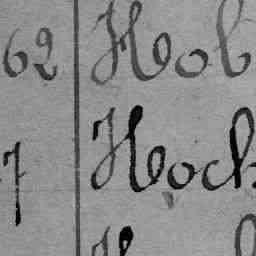 62 Hob
7 Hock